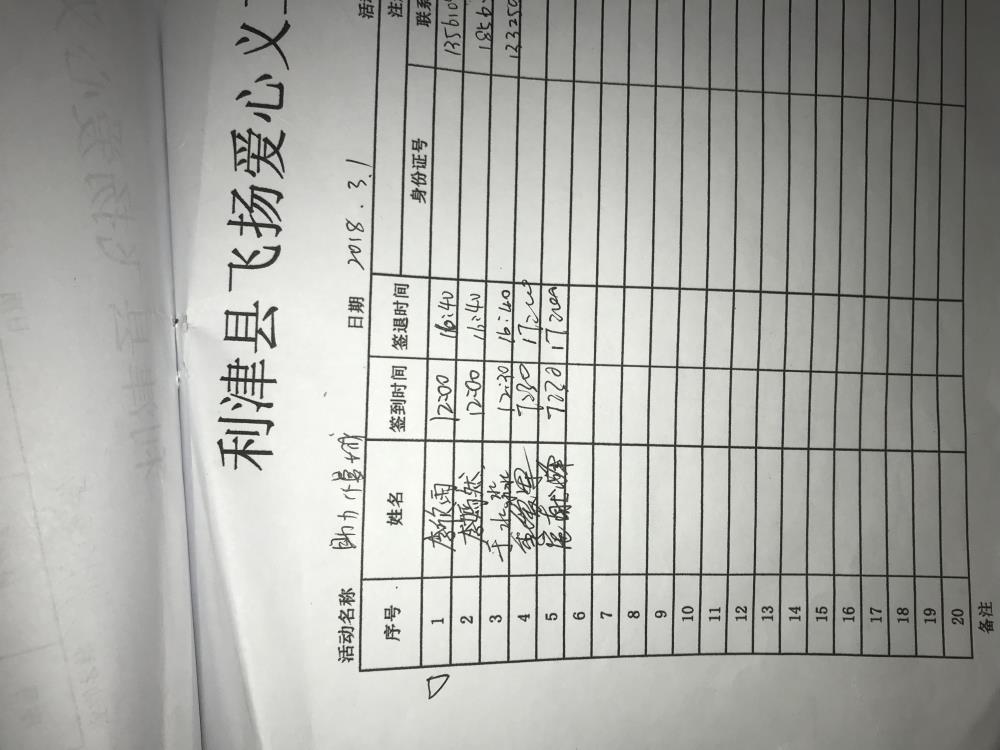 利津县飞扬爱心义
活动名称 助力 日期 2018.3.1 活
注
序号 姓名 签到时间 签退时间 身份证号 联系
1 李欣雨 12:00 16:40 135610
2 李嫣然 12:00 16:40 1856
3 12:30 16:40 133250
4 7:30
5 7:30
6
7
8
9
10
11
12
13
14
15
16
17
18
19
20
备注